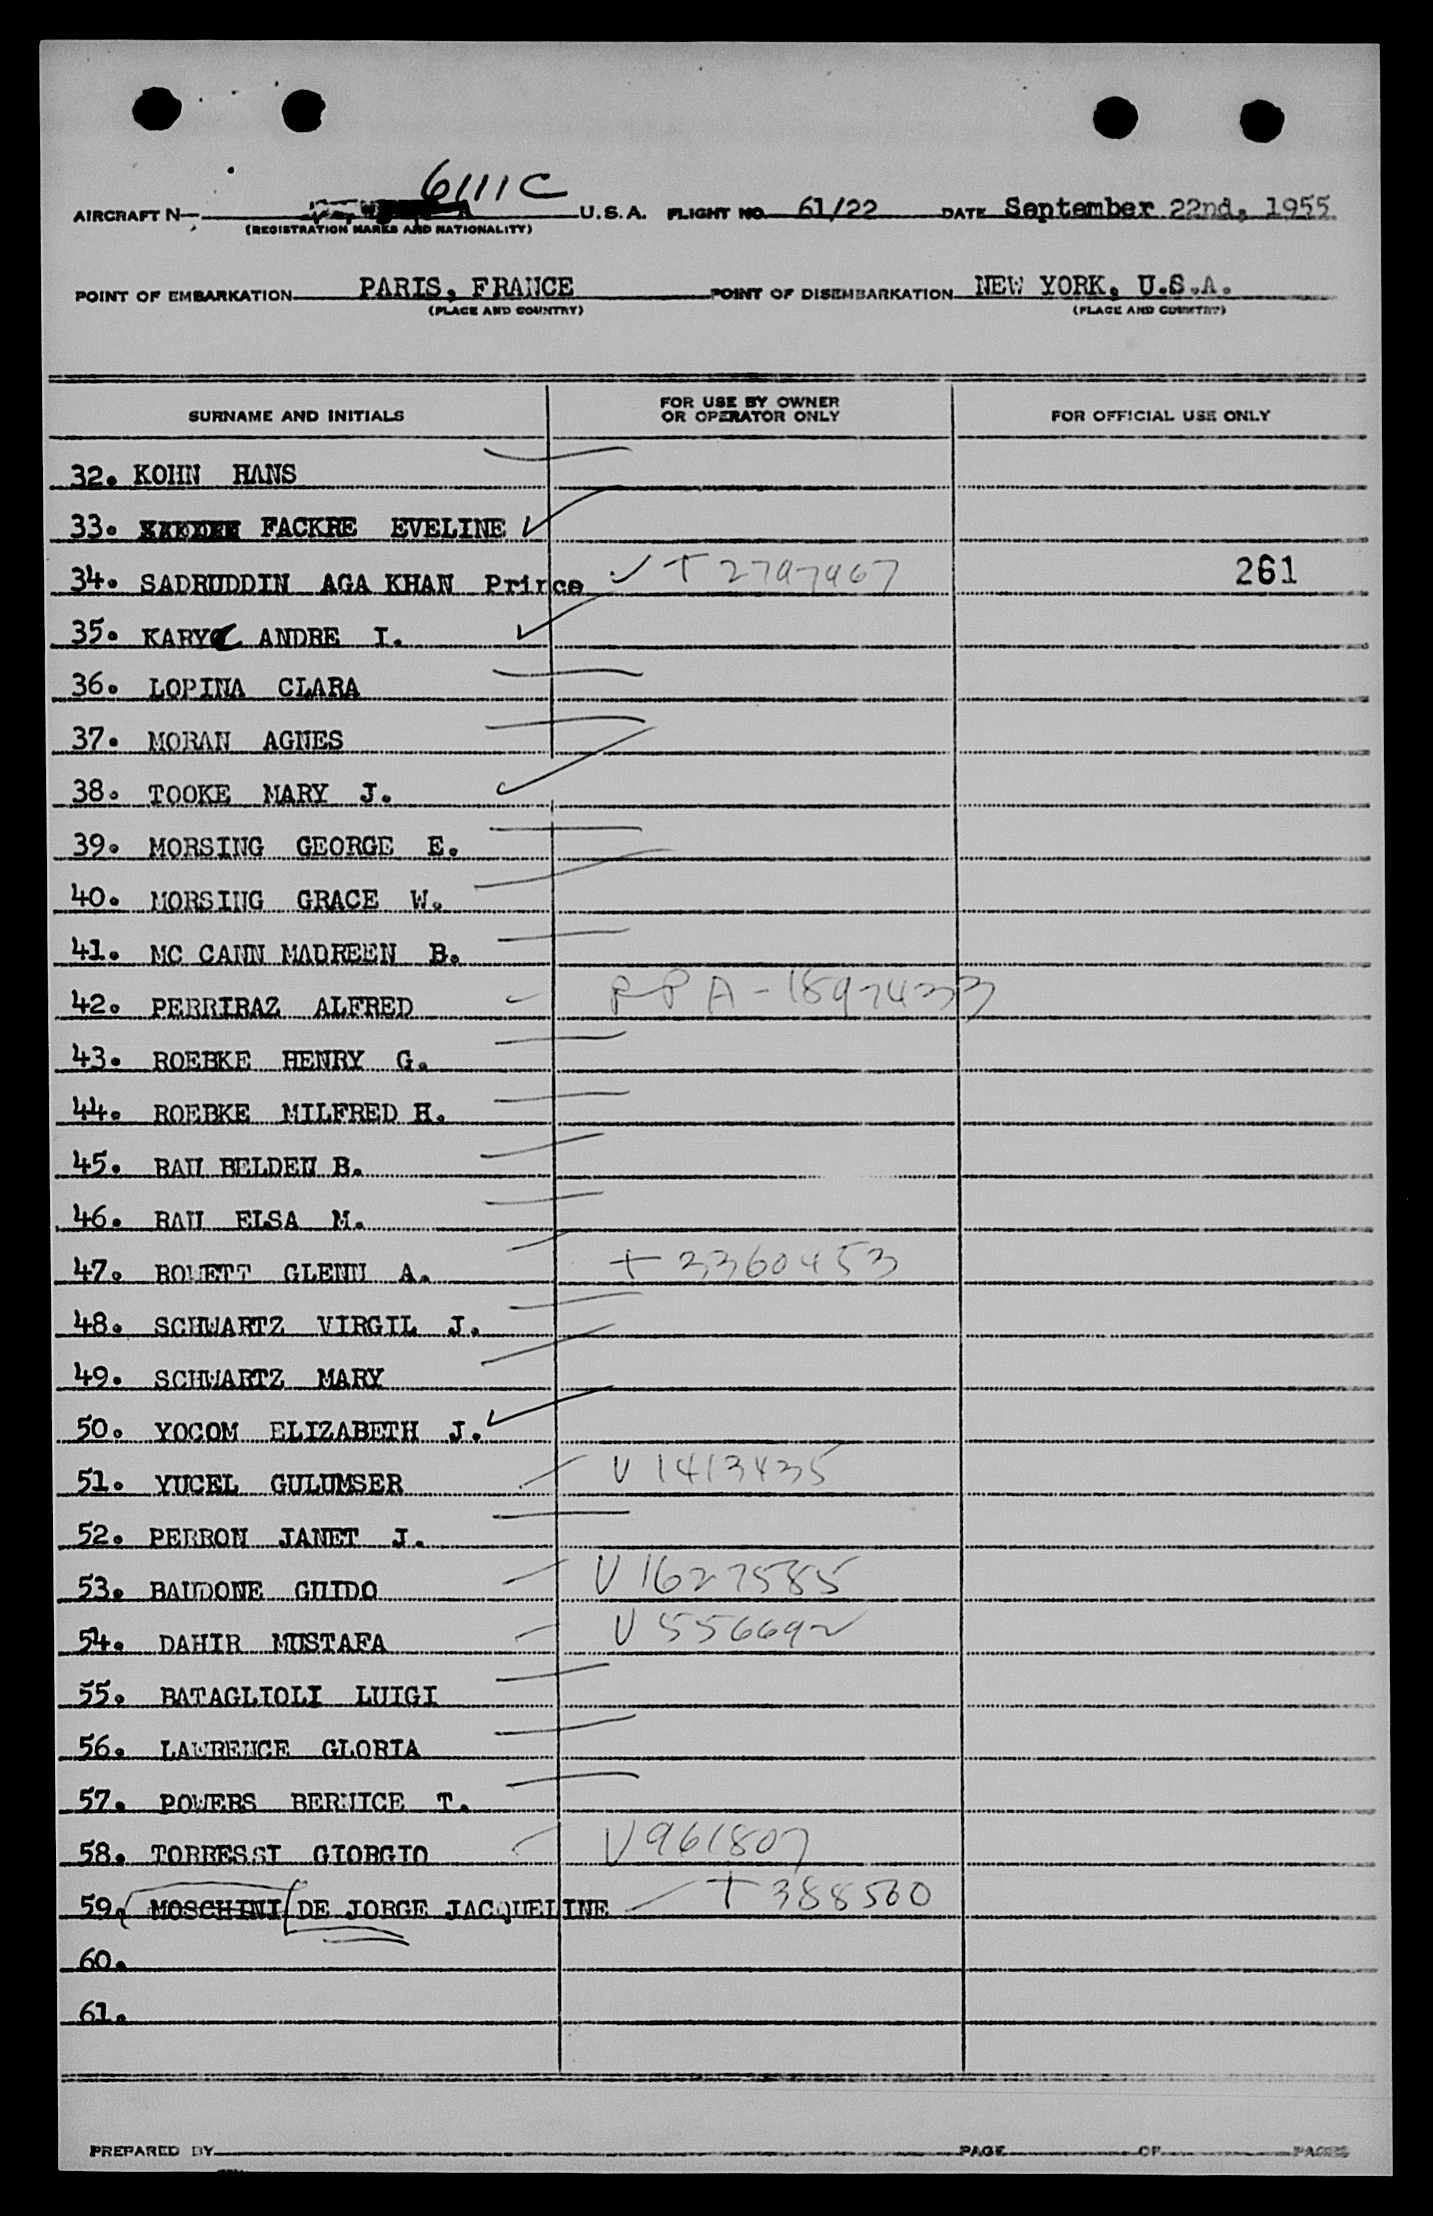 6111C
AIRCRAFT N- U.S.A. FLIGHT NO. 61/22 DATE September 22nd, 1955
(REGISTRATION MARKS AND NATIONALITY)
POINT OF EMBARKATION PARIS, FRANCE POINT OF DISEMBARKATION NEW YORK, U.S.A.
(PLACE AND COUNTRY) (PLACE AND COUNTRY)
SURNAME AND INITIALS FOR USE BY OWNER OR OPERATOR ONLY FOR OFFICIAL USE ONLY
32. KOHN HANS
33. FACKRE EVELINE
34. SADRUDDIN AGA KHAN Prince T 2797967 261
35. KARYC ANDRE I.
36. LOPINA CLARA
37. MORAN AGNES
38. TOOKE MARY J.
39. MORSING GEORGE E.
40. MORSING GRACE W.
41. MC CANN MADREEN B.
42. PERRIRAZ ALFRED RPA-15974333
43. ROEBKE HENRY G.
44. ROEBKE MILFRED H.
45. RAU BELDEN B.
46. RAU ELSA M.
47. ROWETT GLENN A. T 3360453
48. SCHWARTZ VIRGIL J.
49. SCHWARTZ MARY
50. YOCOM ELIZABETH J.
51. YUCEL GULUMSER V 1413435
52. PERRON JANET J.
53. BAUDONE GUIDO V 1627585
54. DAHIR MUSTAFA V 556692
55. BATAGLIOLI LUIGI
56. LAWRENCE GLORIA
57. POWERS BERNICE T.
58. TORRESSI GIORGIO V 961807
59. MOSCHINI DE JORGE JACQUELINE T 388560
60.
61.
PREPARED BY PAGE OF PAGES